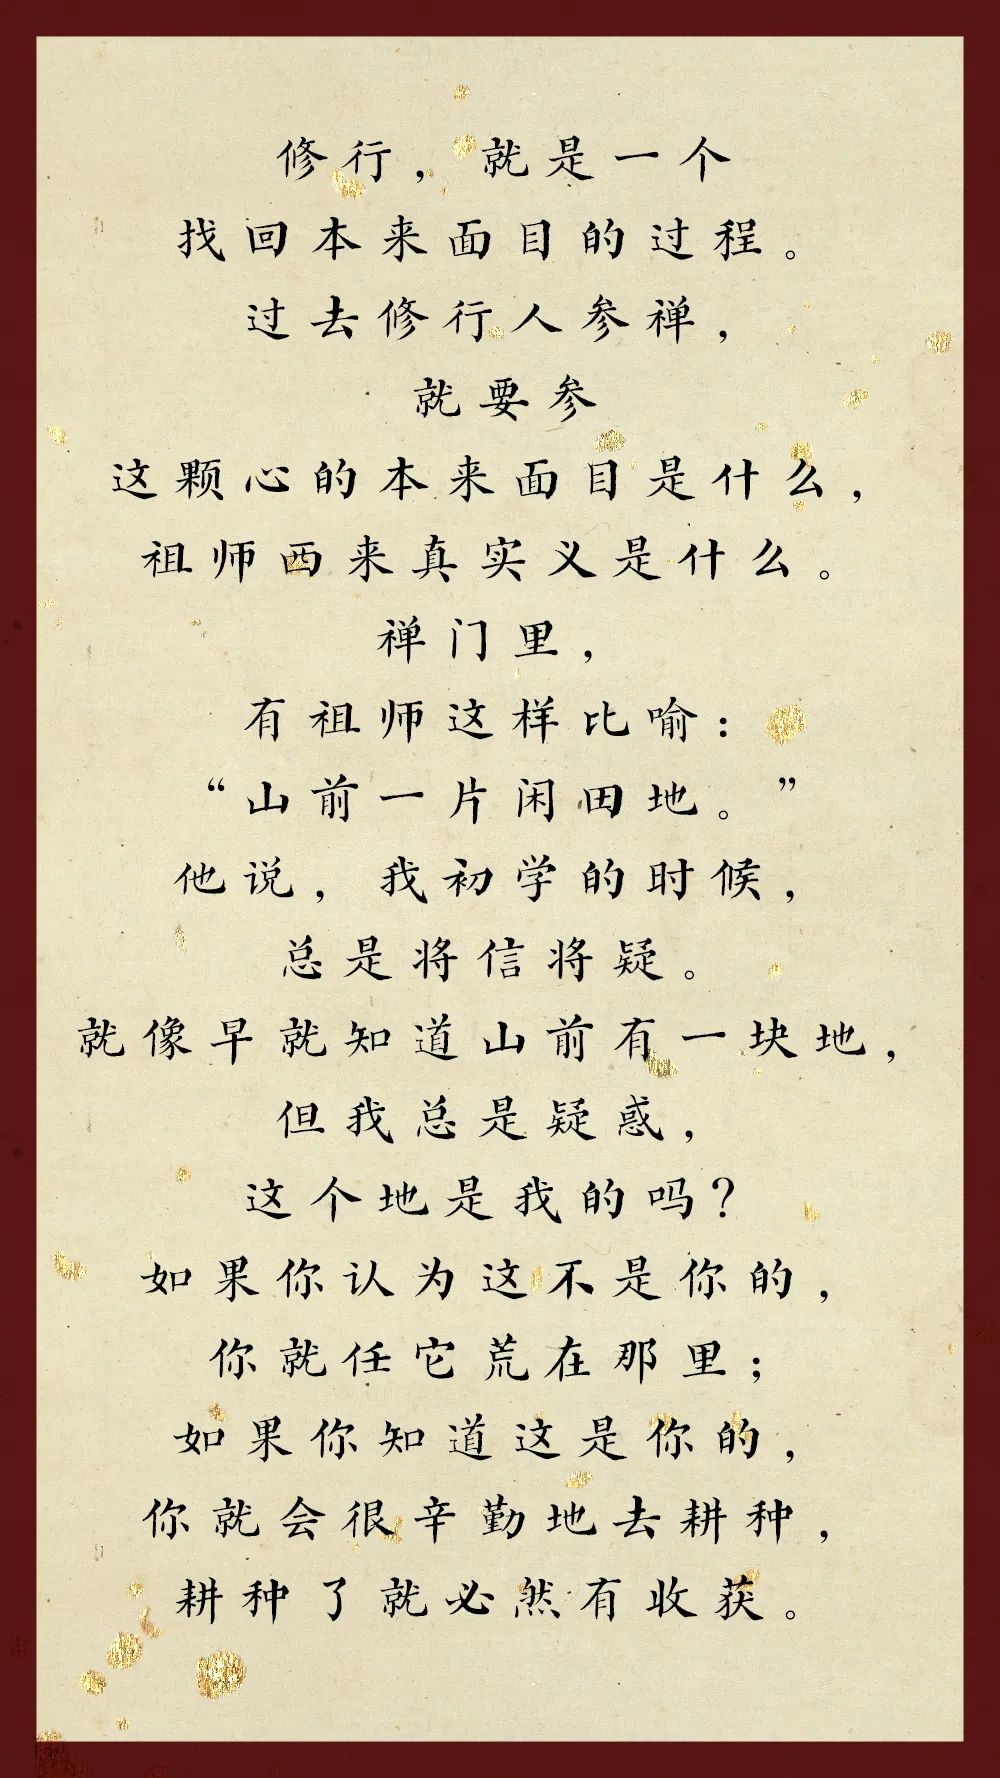 修行，就是一个
找回本来面目的过程。
过去修行人参禅，
就要参
这颗心的本来面目是什么，
祖师西来真实义是什么。
禅门里，
有祖师这样比喻：
“山前一片闲田地。”
他说，我初学的时候，
总是将信将疑。
就像早就知道山前有一块地，
但我总是疑惑，
这个地是我的吗？
如果你认为这不是你的，
你就任它荒在那里；
如果你知道这是你的，
你就会很辛勤地去耕种，
耕种了就必然有收获。